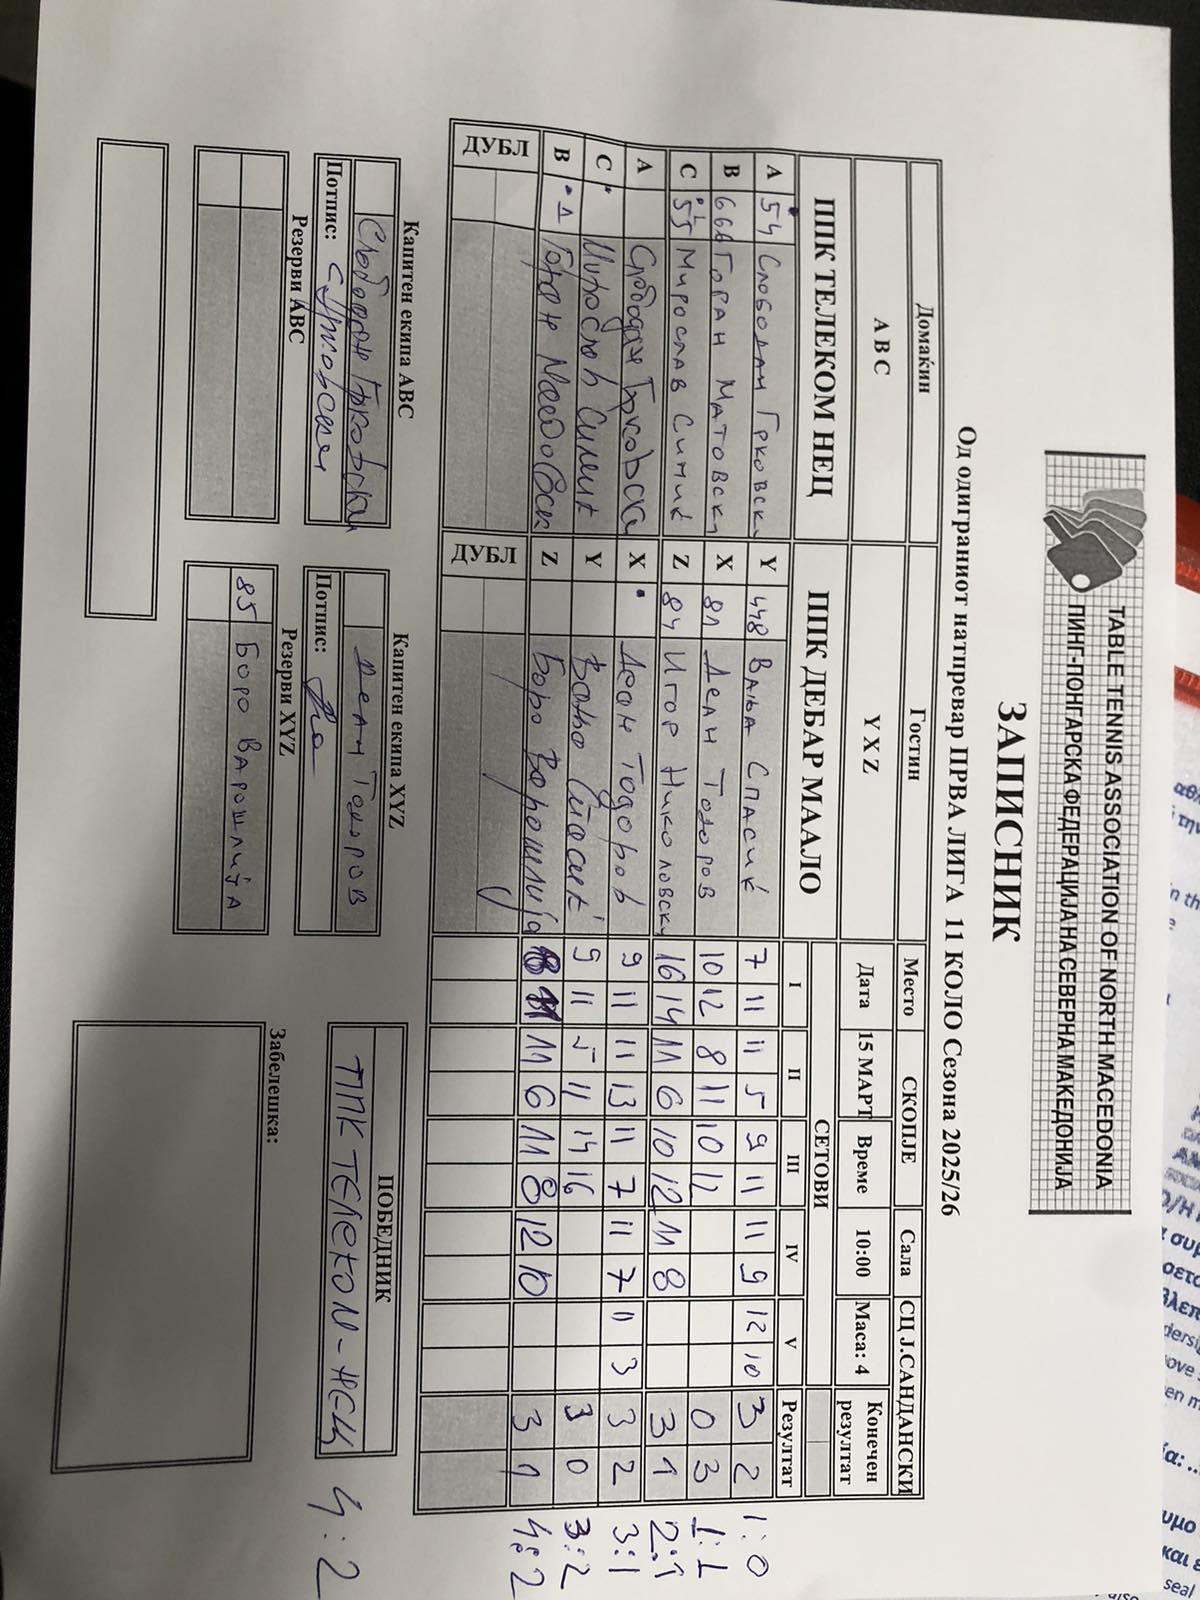 TABLE TENNIS ASSOCIATION OF NORTH MACEDONIA
ПИНГ-ПОНГАРСКА ФЕДЕРАЦИЈА НА СЕВЕРНА МАКЕДОНИЈА
ЗАПИСНИК
Од одиграниот натпревар ПРВА ЛИГА 11 КОЛО Сезона 2025/26
Домаќин Гостин Место СКОПЈЕ Сала СЦ Ј.САНДАНСКИ
A B C Y X Z Дата 15 МАРТ Време 10:00 Маса: 4 Конечен резултат
ППК ТЕЛЕКОМ НЕЦ ППК ДЕБАР МААЛО СЕТОВИ
I II III IV V Резултат
A 54 Слободан Грковски Y 448 Вања Спасиќ 7 11 11 5 9 11 11 9 12 10 3 2 1:0
B 666 Горан Матовски X 81 Деан Тодоров 10 12 8 11 10 12 0 3 1:1
C 55 Мирослав Симиќ Z 84 Игор Николовски 16 14 11 6 10 12 11 8 3 1 2:1
A Слободан Грковски X Деан Тодоров 9 11 11 13 11 7 11 7 11 3 3 2 3:1
C Y 9 11 5 11 14 16 3 0 3:2
B 1 Горан Z Боро Варошлија 11 6 11 8 12 10 3 1 4:2
ДУБЛ ДУБЛ
Капитен екипа ABC Капитен екипа XYZ ПОБЕДНИК
Слободан Грковски Деан Тодоров ППК ТЕЛЕКОМ-НЕЦ 4:2
Потпис: С Грковски Потпис:
Резерви ABC Резерви XYZ Забелешка:
85 Боро Варошлија